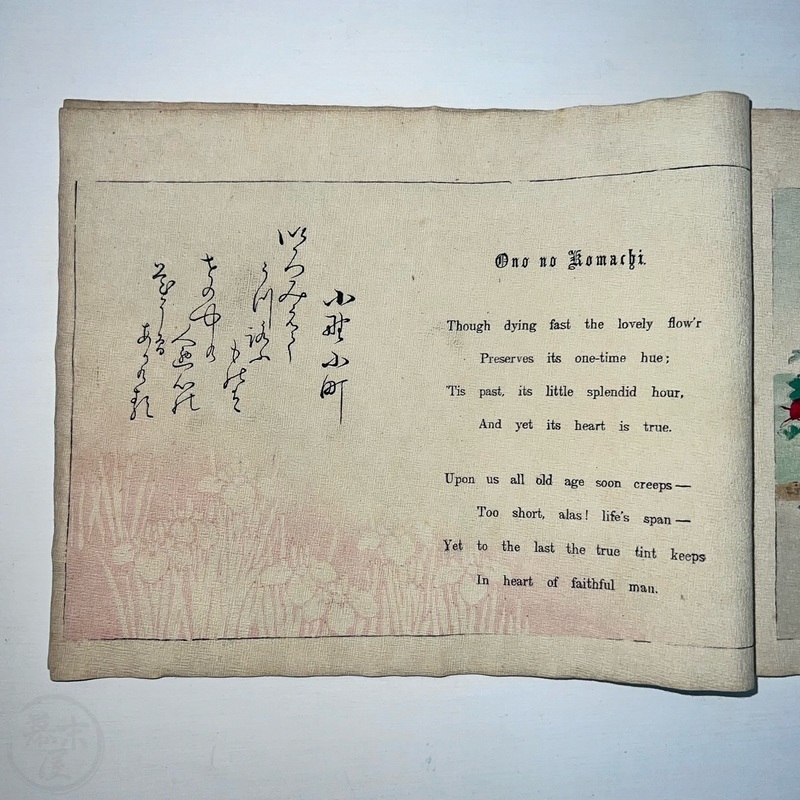 小野小町
以ろみえて
うつ路ふ
世の中の
Ono no Komachi.
Though dying fast the lovely flow'r
Preserves its one-time hue;
'Tis past, its little splendid hour,
And yet its heart is true.
Upon us all old age soon creeps—
Too short, alas! life's span—
Yet to the last the true tint keeps
In heart of faithful man.